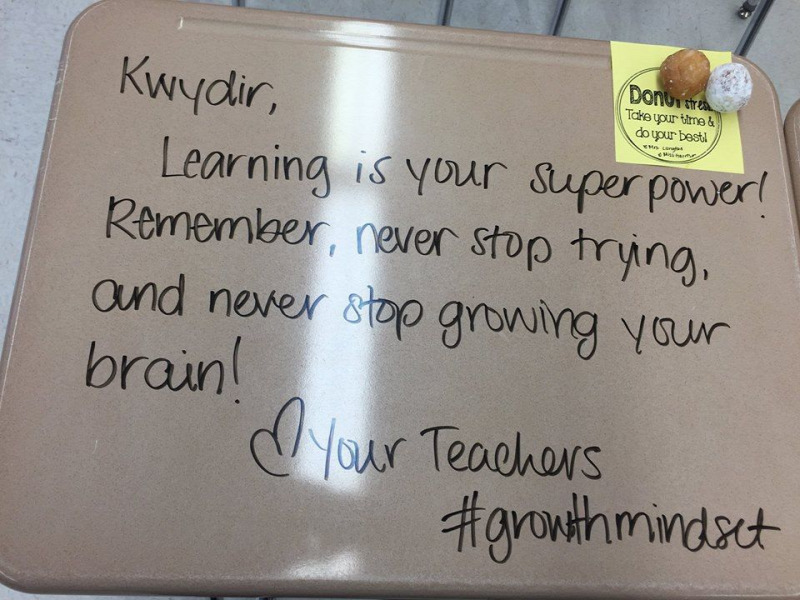 Kwydir,
Learning is your superpower!
Remember, never stop trying,
and never stop growing your
brain!
♡ Your Teachers
#growthmindset
Donut stress
Take your time &
do your best!